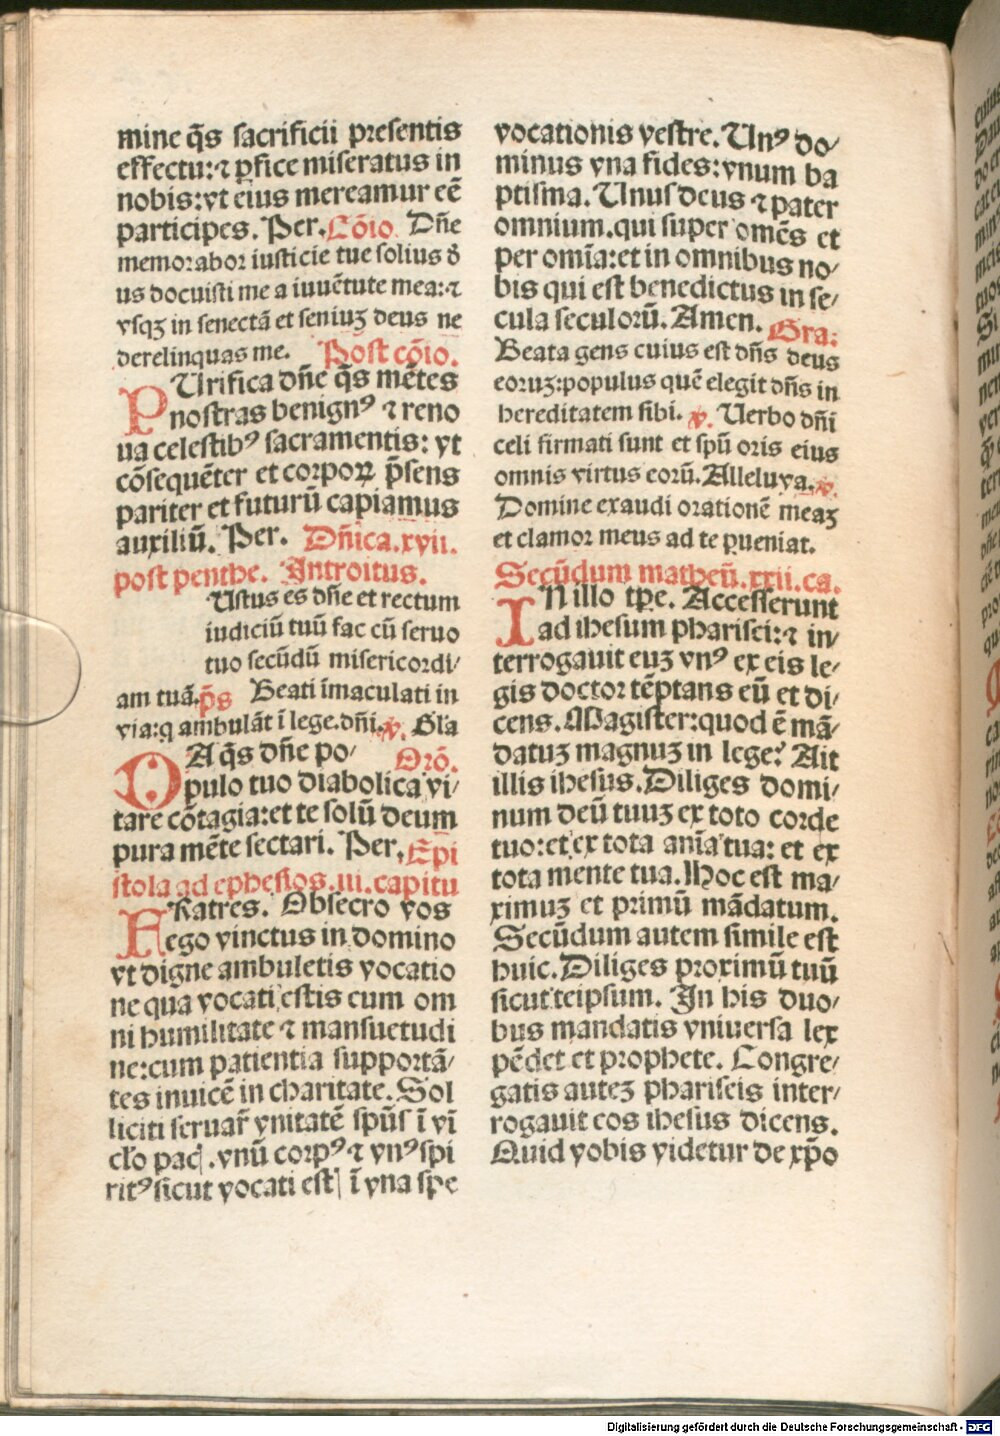 mine q̄s sacrificii presentis
effectu:⁊ ꝑfice miseratus in
nobis:vt eius mereamur eē
participes. Per. Cōio. Dn̄e
memorabor iusticie tue solius ð
us docuisti me a iuuētute mea:⁊
vsqꝫ in senectā et seniuꝫ deus ne
derelinquas me. Post cōio.
PUrifica dn̄e q̄s mētes
nostras benignꝰ ⁊ reno
ua celestibꝰ sacramentis: vt
cōsequēter et corporꝝ p̄sens
pariter et futurū capiamus
auxiliū. Per. Dn̄ica.xvii.
post penthe. Introitus.
Ustus es dn̄e et rectum
iudiciū tuū fac cū seruo
tuo secūdū misericordi/
am tuā. p̄s Beati īmaculati in
via:q ambulāt ī lege.dn̄i. ℣. Gl̄a
DA q̄s dn̄e po- Orō.
pulo tuo diabolica vi/
tare cōtagia:et te solū deum
pura mēte sectari. Per. Epi
stola ad ephesios.iii.capitu
FRatres. Obsecro vos
ego vinctus in domino
vt digne ambuletis vocatio
ne qua vocati estis cum om
ni humilitate ⁊ mansuetudi
ne:cum patientia supportā/
tes inuicē in charitate. Sol
liciti seruar̄ vnitatē spūs ī vī
cl̄o pacꝭ.vnū corpꝰ ⁊ vnꝰ spi
ritꝰ sicut vocati estꝭ ī vna spe
vocationis vestre. Unꝰ do/
minus vna fides:vnum ba
ptisma. Unus deus ⁊ pater
omnium.qui super omēs et
per omīa:et in omnibus no/
bis qui est benedictus in se/
cula seculorū. Amen. Gra:
Beata gens cuius est dn̄s deus
eoruꝫ:populus quē elegit dn̄s in
hereditatem sibi. ℣. Uerbo dn̄i
celi firmati sunt et spū oris eius
omnis virtus eorū. Alleluya. ℣.
Domine exaudi orationē meaꝫ
et clamor meus ad te ꝑueniat.
Secūdum matheū.xxii.ca.
IN illo tꝑe. Accesserunt
ad ihesum pharisei:⁊ in/
terrogauit euꝫ vnꝰ ex eis le/
gis doctor tēptans eū et di/
cens. Magister:quod ē mā/
datuꝫ magnuꝫ in lege? Ait
illis ihesus. Diliges domi/
num deū tuuꝫ ex toto corde
tuo:et ex tota anīa tua: et ex
tota mente tua. Hoc est ma/
ximuꝫ et primū mādatum.
Secūdum autem simile est
huic. Diliges proximū tuū
sicut teipsum. In his duo/
bus mandatis vniuersa lex
pēdet et prophete. Congre/
gatis auteꝫ phariseis inter/
rogauit eos ihesus dicens.
Quid vobis videtur de xp̄o
Digitalisierung gefördert durch die Deutsche Forschungsgemeinschaft - DFG